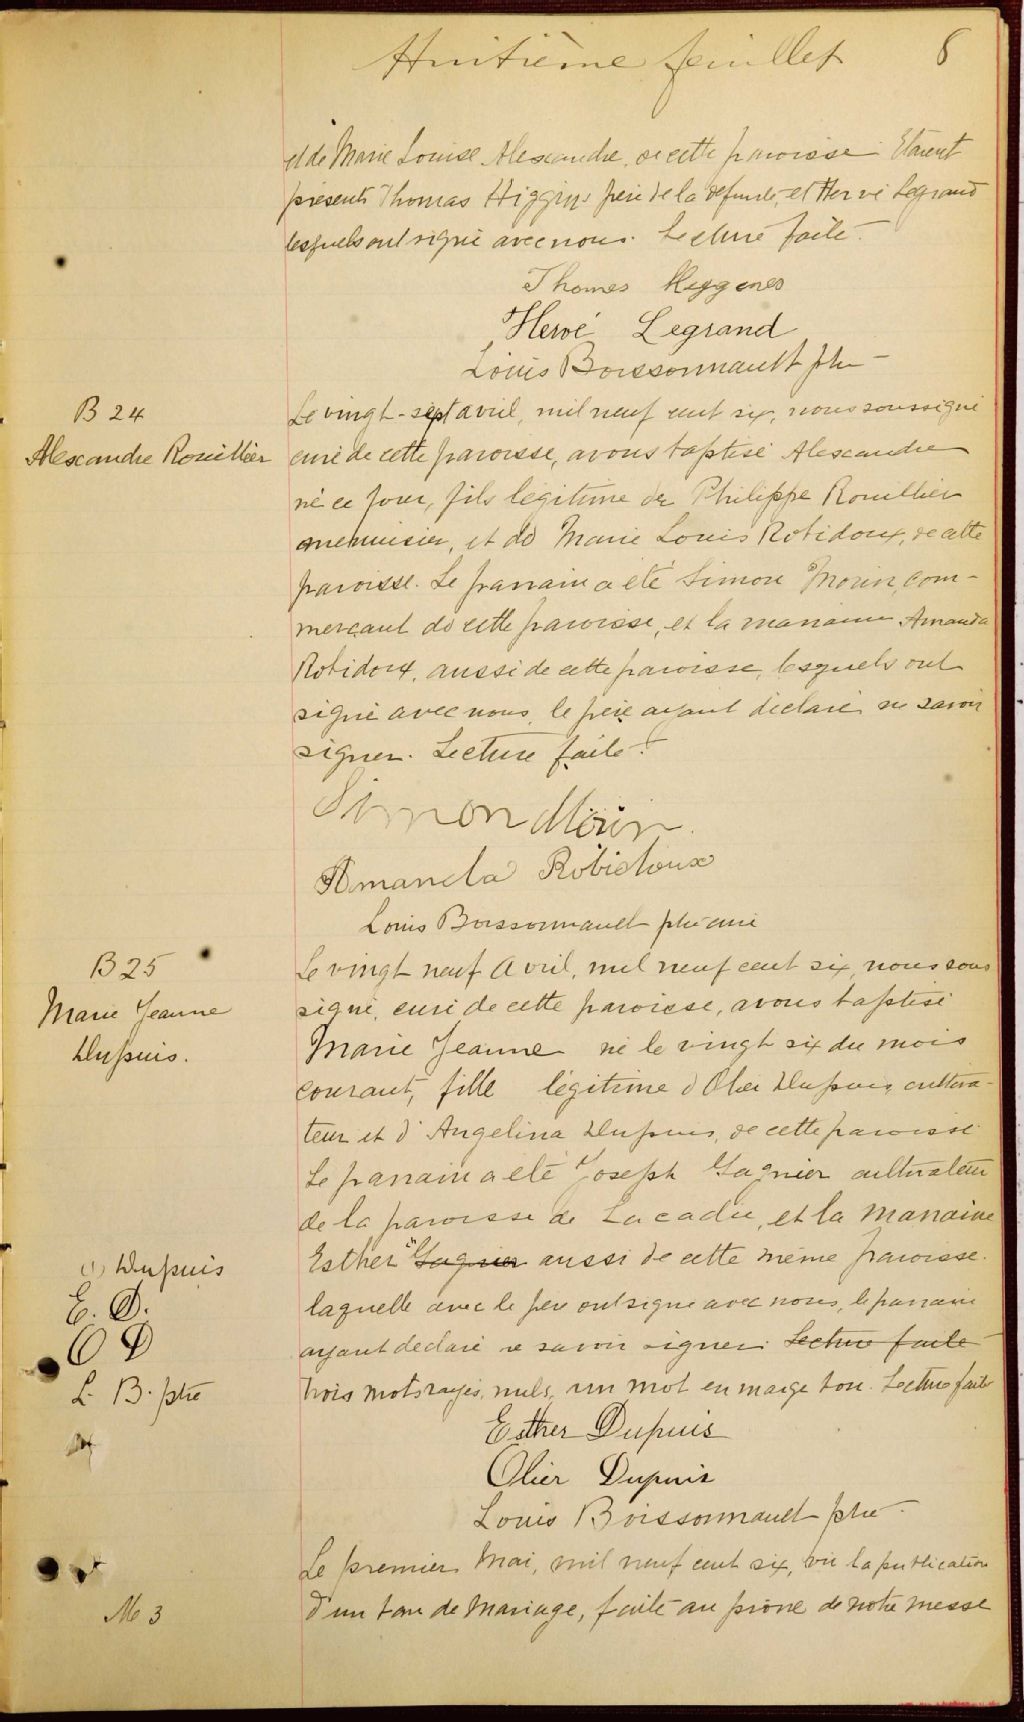 Huitième feuillet 8
et de Marie Louise Alexandre, de cette paroisse. Etaient
présents Thomas Higgins père de la défunte, et Hervé Legrand
lesquels ont signé avec nous. Lecture faite.
Thomes Higgenes
Hervé Legrand
Louis Boissonnault ptre
B 24
Alexandre Rouillier
Le vingt-sept avril, mil neuf cent six, nous soussigné
curé de cette paroisse, avons baptisé Alexandre
né ce jour, fils légitime de Philippe Rouillier
menuisier, et de Marie Louis Robidoux, de cette
paroisse. Le parrain a été Simon Morin, com-
merçant de cette paroisse, et la marraine Amanda
Robidoux, aussi de cette paroisse, lesquels ont
signé avec nous, le père ayant déclaré ne savoir
signer. Lecture faite.
Simon Morin
Amanda Robidoux
Louis Boissonnault ptre curé
B 25
Marie Jeanne
Dupuis.
Le vingt neuf Avril, mil neuf cent six, nous sous
signé, curé de cette paroisse, avons baptisé
Marie Jeanne né le vingt six du mois
courant, fille légitime d'Olier Dupuis, cultiva-
teur et d'Angelina Dupuis, de cette paroisse
Le parrain a été Joseph Gagnier cultivateur
de la paroisse de Lacadie, et la marraine
Esther Gagnier aussi de cette même paroisse.
(1) Dupuis
E. D.
O D
L. B. ptre
laquelle avec le père ont signé avec nous, le parrain
ayant déclaré ne savoir signer. Lecture faite
Trois mots rayés, nuls, un mot en marge bon. Lecture faite
Esther Dupuis
Olier Dupuis
Louis Boissonnault ptre
M 3
Le premier Mai, mil neuf cent six, vu la publication
d'un ban de mariage, faite au prône de notre messe